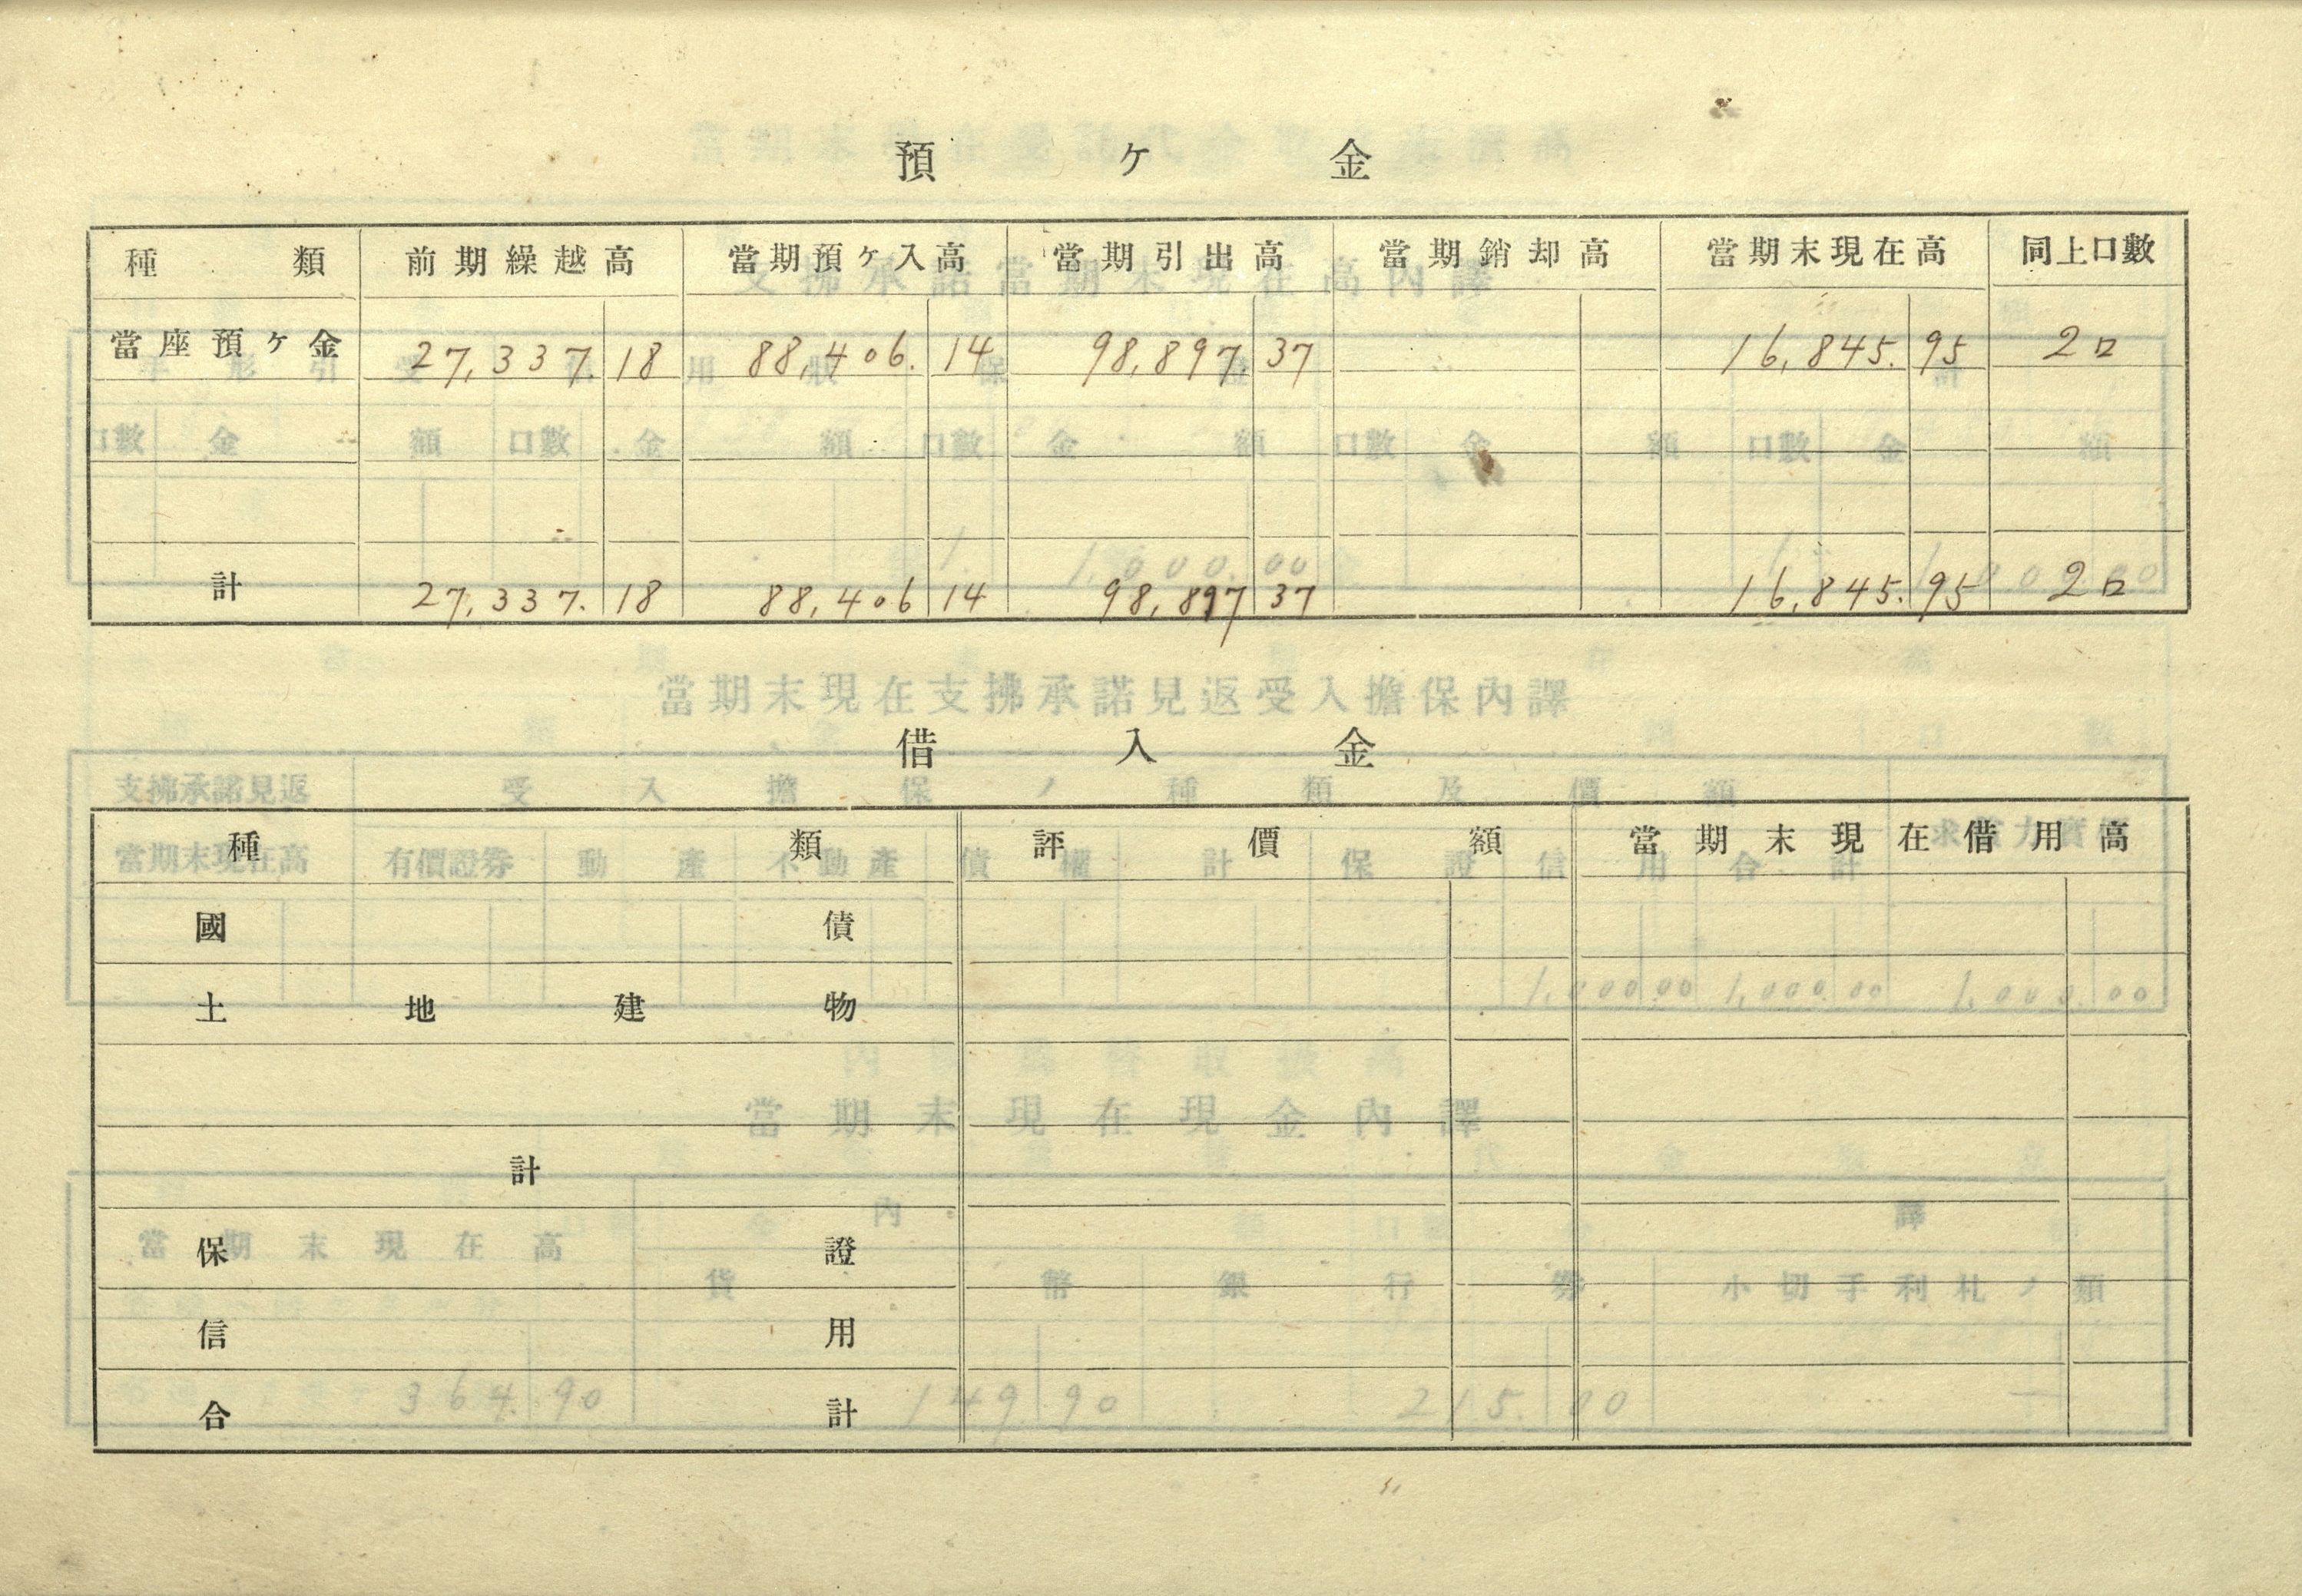 預ヶ金
種類 前期繰越高 當期預ヶ入高 當期引出高 當期銷却高 當期末現在高 同上口數
當座預ヶ金 27,337.18 88,406.14 98,897.37 16,845.95 2口
計 27,337.18 88,406 14 98,897 37 16,845.95 2口
借入金
種類 評價額 當期末現在借用高
國債
土地建物
計
保證
信用
合計